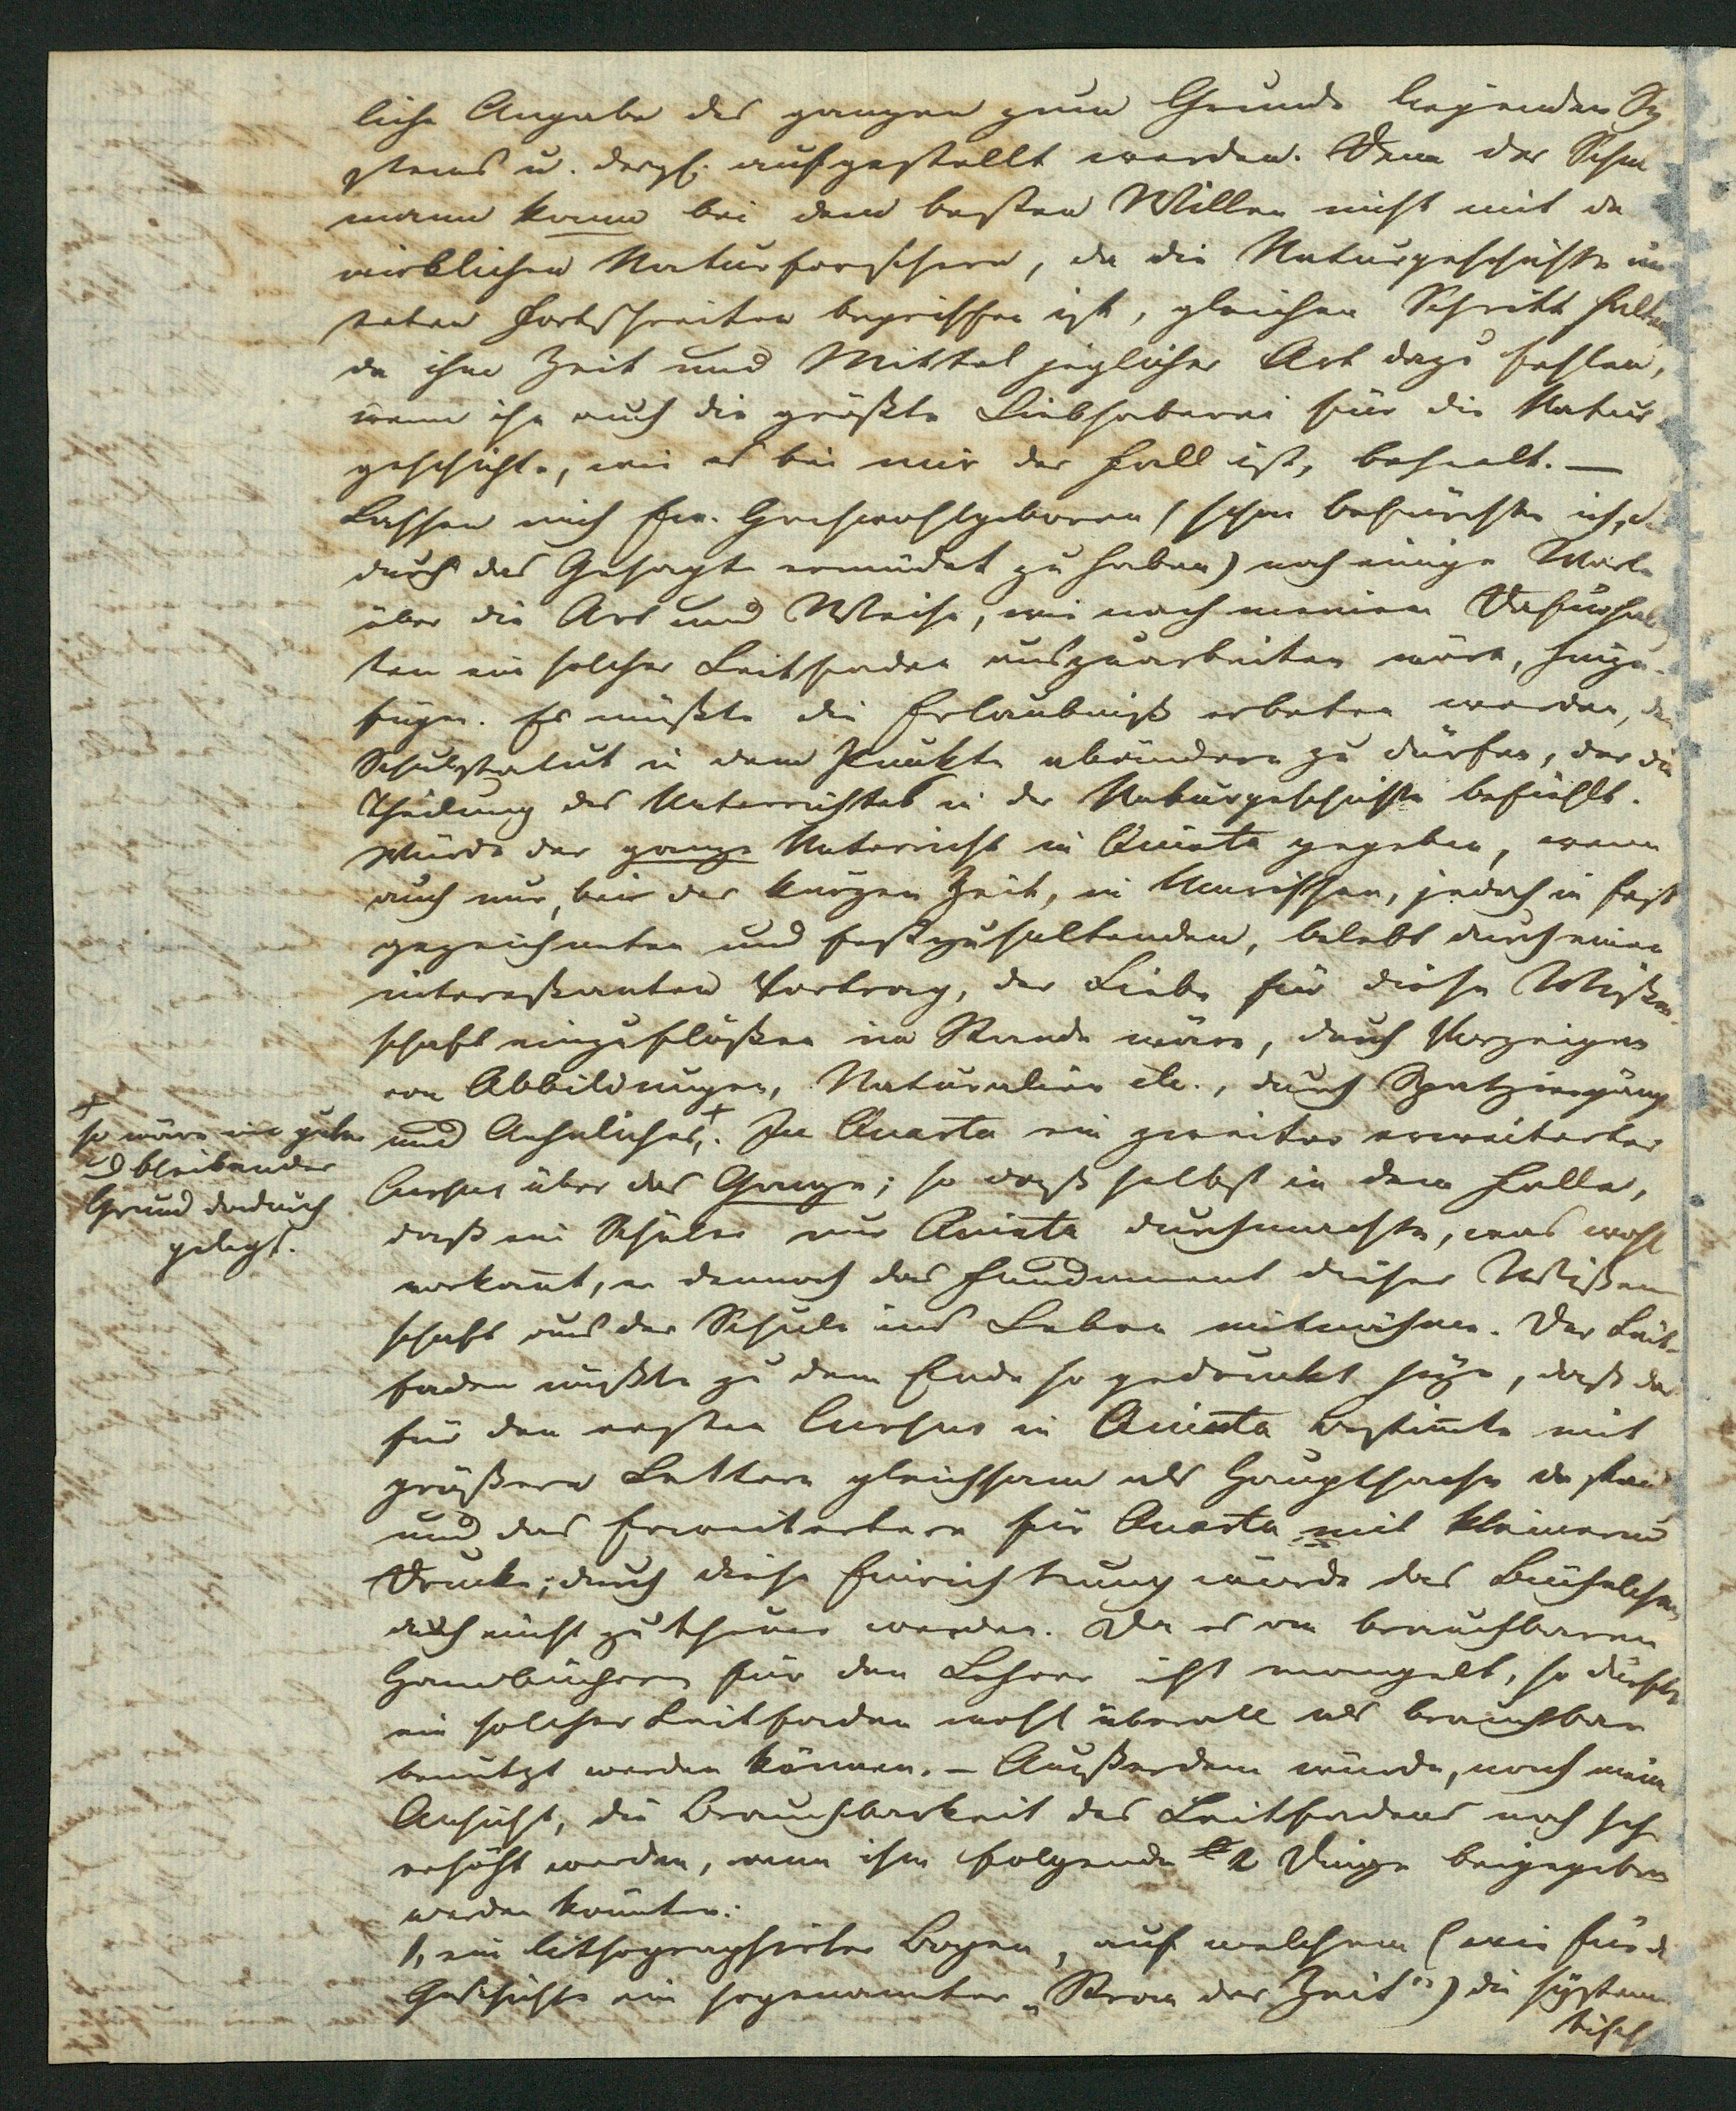 liche Angabe des ganzen zum Grunde liegenden Sy
stems u. dergl. aufgestellt werden. Denn der Schul
mann kann bei dem besten Willen nicht mit de
wirklichen Naturforschern, da die Naturgeschichte im
steten Fortschreiten begriffen ist, gleichen Schritt halten
da ihm Zeit und Mittel jeglicher Art dazu fehlen,
wenn ihn auch die größte Liebhaberei für die Natur-
geschichte, wie es bei mir der Fall ist, beseelt. —
Lassen mich Ew. Hochwohlgeboren (schon befürchte ich, 
durch das Gesagte ermüdet zu haben) noch einige Worte
über die Art und Weise, wie nach meinem Dafürhal
ten ein solcher Leitfaden auszuarbeiten wäre, hinzu-
fügen. Es müßte die Erlaubniß erbeten werden, das
Schulstatut in dem Punkte abändern zu dürfen, der die
Theilung des Unterrichtes in der Naturgeschichte befiehlt.
Würde der ganze Unterricht in Quinta gegeben, wenn
auch nur, bei der kurzen Zeit, in Umrissen, jedoch in fest
gezeichneten und festzuhaltenden, belebt durch einen
interessanten Vortrag, der Liebe für diese Wißen-
schaft einzuflößen im Stande wäre, durch Vorzeigen
von Abbildungen, Naturalien etc., durch Spatziergänge
und Aehnliches,+. In Quarta ein zweiter erweiterter
Cursus über das Ganze; so daß selbst in dem Falle,
daß ein Schüler nur Quinta durchmachte, was wohl
vorkom̄t, er dennoch das Fundament dieser Wißen
schaft aus der Schule ins Leben mitnähme. Der Leit-
faden müßte zu dem Ende so gedruckt seyn, daß das
für den ersten Cursus in Quinta bestim̄te mit
größern Lettern gleichsam als Hauptsache da stand
und das Erweitertere für Quarta mit kleinerm
Drucke; durch diese Einrichtung würde das Büchelchen
auch nicht zu theuer werden. Da es an brauchbaren
Handbüchern für den Lehrer  mangelt, so dürfte
ein solcher Leitfaden wohl überall als brauchbar
benutzt werden können. – Außerdem würde, nach mein
Ansicht, die Brauchbarkeit des Leitfadens noch sehr
erhöht werden, wenn ihm folgende 2 Dinge beigegeben
werden könnten:
1, ein lithographirter Bogen, auf welchem (wie für d
Geschichte ein sogenannter „Strom der Zeit") die systema
tisch
+
so wäre ein guter
u bleibender
Grund dadurch
gelegt.